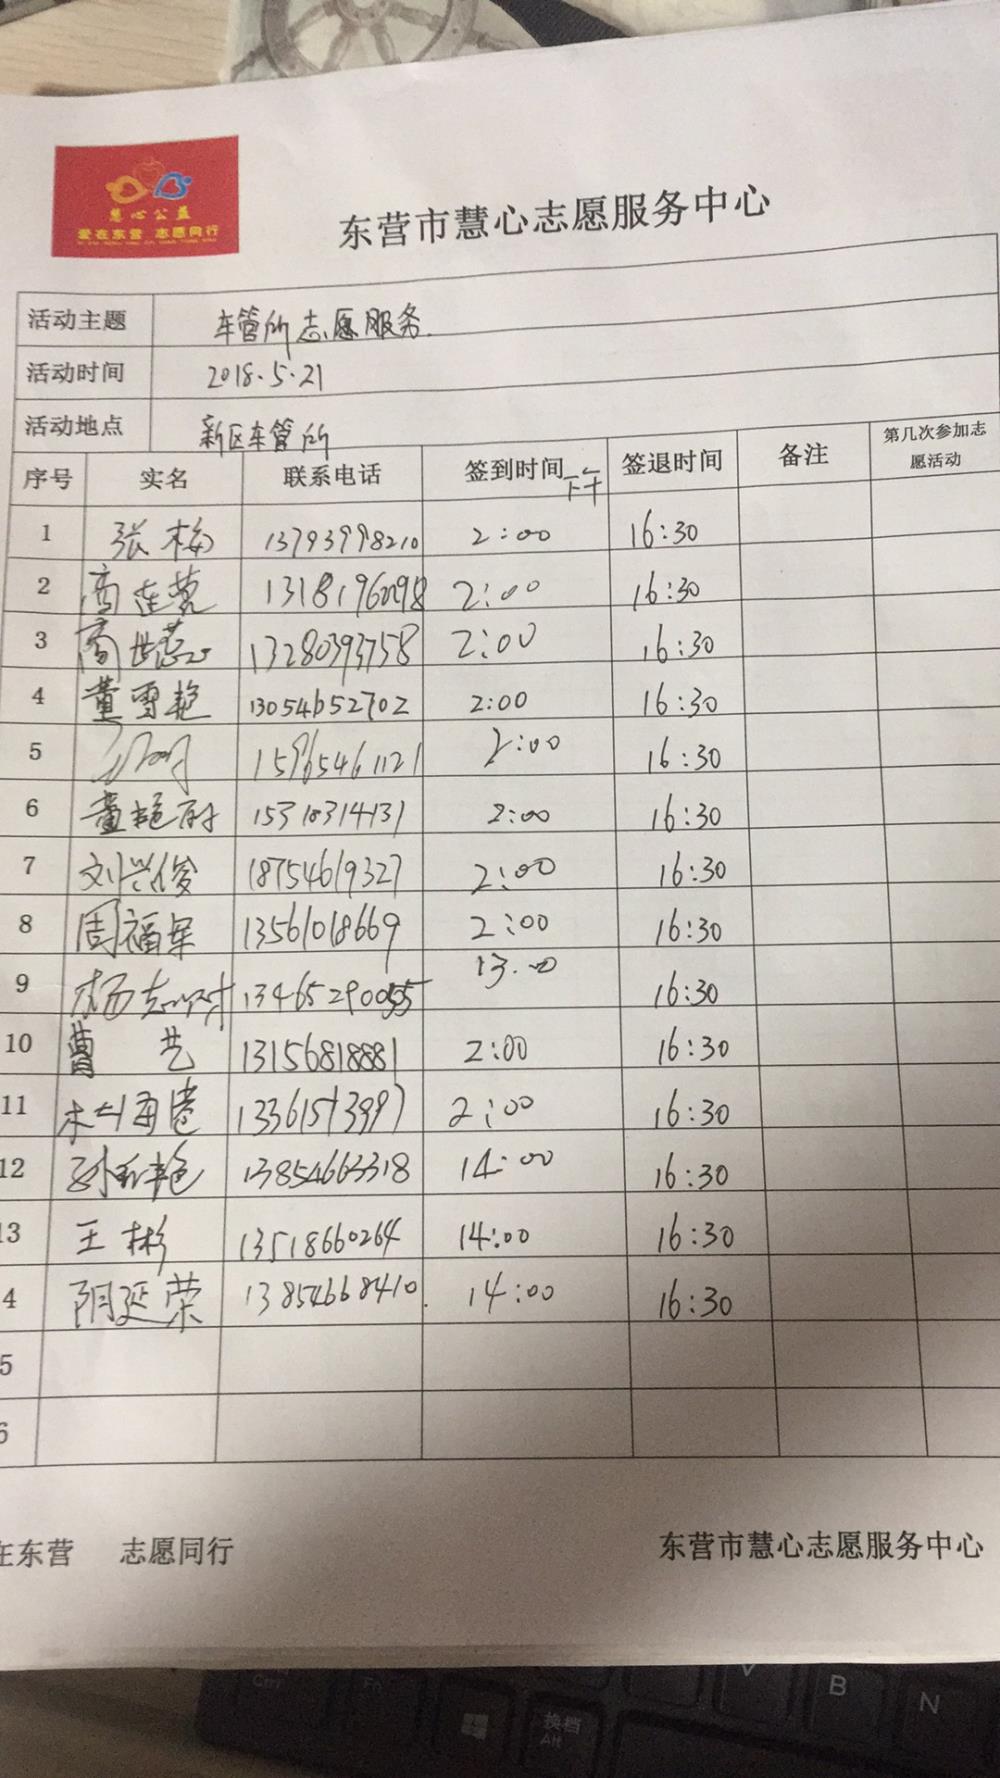 慧心公益
爱在东营 志愿同行
东营市慧心志愿服务中心
活动主题 车管所志愿服务
活动时间 2018.5.21
活动地点 新区车管所
序号 实名 联系电话 签到时间 下午 签退时间 备注 第几次参加志愿活动
1 张梅 13793998210 2:00 16:30
2 高连荒 13181960098 2:00 16:30
3 13280393758 2:00 16:30
4 董雪艳 13054652702 2:00 16:30
5 15965461121 2:00 16:30
6 15318314131 2:00 16:30
7 刘兴俊 18754619327 2:00 16:30
8 周福军 13561018669 2:00 16:30
9 13465290055 13:00 16:30
10 曹艺 13156818881 2:00 16:30
11 13361513997 2:00 16:30
12 孙和艳 13854663318 14:00 16:30
13 王彬 13518660264 14:00 16:30
4 阴延荣 13854668410 14:00 16:30
5
6
在东营 志愿同行 东营市慧心志愿服务中心
Ctrl Fn 换档 Alt V B N